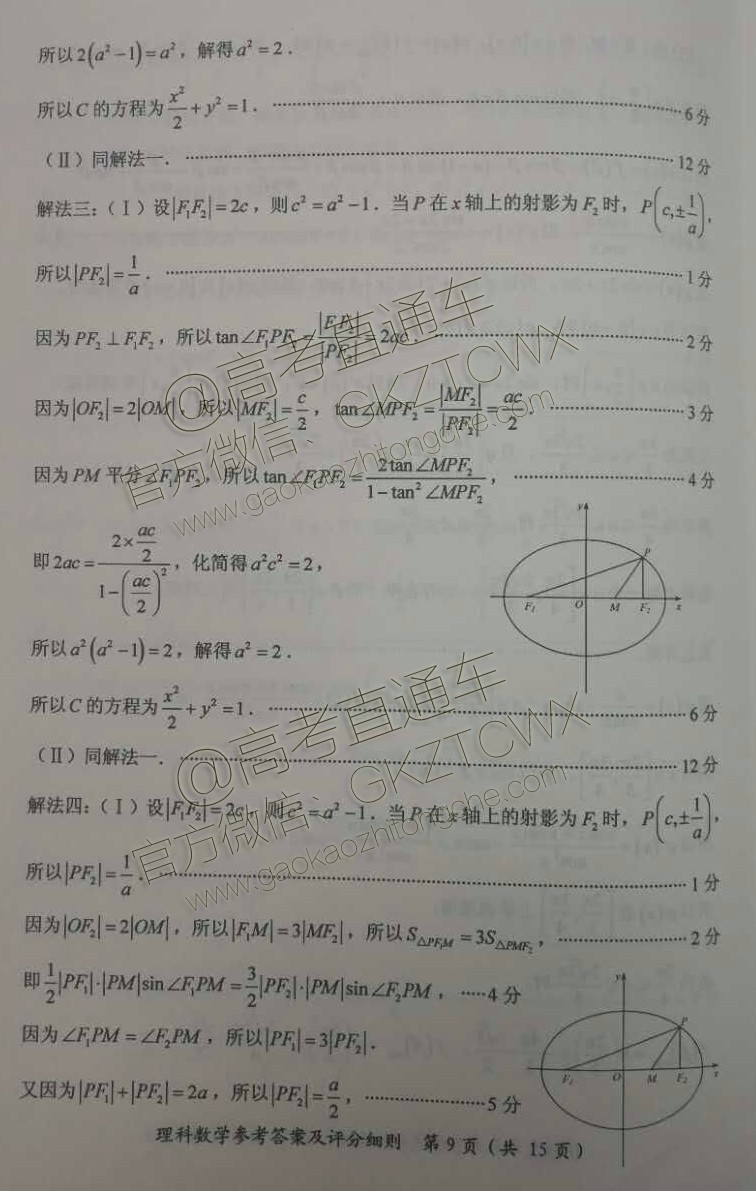 所以2(a²−1)=a², 解得a²=2.
所以C的方程为x²/2+y²=1. ……………………6分
(Ⅱ) 同解法一. ……………………12分
解法三:(Ⅰ)设|F₁F₂|=2c, 则c²=a²−1. 当P在x轴上的射影为F₂时, P(c,±1/a),
所以|PF₂|=1/a. ……………………1分
因为PF₂⊥F₁F₂, 所以tan∠F₁PF₂=|F₁F₂|/|PF₂|=2ac. ……………………2分
因为|OF₂|=2|OM|, 所以|MF₂|=c/2, tan∠MPF₂=|MF₂|/|PF₂|=ac/2 ……………………3分
因为PM平分∠F₁PF₂, 所以tan∠F₁PF₂=2tan∠MPF₂/(1−tan²∠MPF₂), ……………………4分
即2ac=(2×ac/2)/(1−(ac/2)²), 化简得a²c²=2,
y
P
F₁ O M F₂ x
所以a²(a²−1)=2, 解得a²=2.
所以C的方程为x²/2+y²=1. ……………………6分
(Ⅱ) 同解法一. ……………………12分
解法四:(Ⅰ)设|F₁F₂|=2c, 则c²=a²−1. 当P在x轴上的射影为F₂时, P(c,±1/a),
所以|PF₂|=1/a. ……………………1分
因为|OF₂|=2|OM|, 所以|F₁M|=3|MF₂|, 所以S△PF₁M=3S△PMF₂, ……………………2分
即1/2|PF₁|·|PM|sin∠F₁PM=3/2|PF₂|·|PM|sin∠F₂PM, ……4分
因为∠F₁PM=∠F₂PM, 所以|PF₁|=3|PF₂|.
y
P
F₁ O M F₂ x
又因为|PF₁|+|PF₂|=2a, 所以|PF₂|=a/2, ……………………5分
理科数学参考答案及评分细则 第9页(共 15页)
@高考直通车
官方微信、GKZTCWX
www.gaokaozhitongche.com
@高考直通车
官方微信、GKZTCWX
www.gaokaozhitongche.com